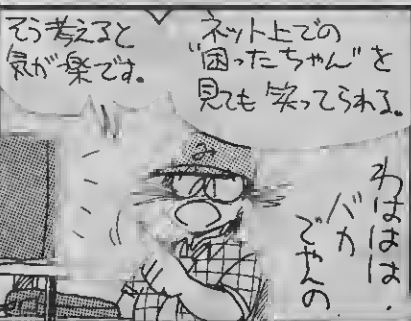 ネット上での
"困ったちゃん"を
見ても笑ってられる。
そう考えると
気が楽です。
み
わははは.
バカ
でやんの